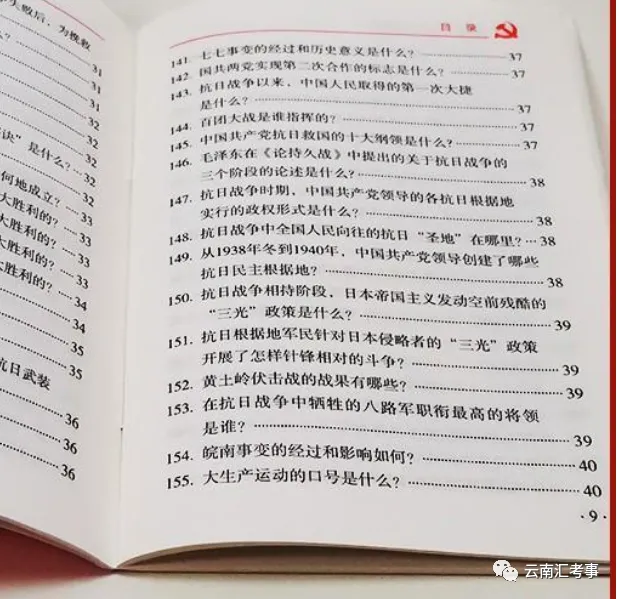 失败后，为挽救
么？
31
31
31
32
32
诀”是什么？ 32
何地成立？ 33
大胜利的？ 33
大胜利的？ 33
大胜利的？ 33
大胜利的？ 34
34
35
35
抗日武装
36
36
36
目 录
141. 七七事变的经过和历史意义是什么？ 37
142. 国共两党实现第二次合作的标志是什么？ 37
143. 抗日战争以来，中国人民取得的第一次大捷
是什么？ 37
144. 百团大战是谁指挥的？ 37
145. 中国共产党抗日救国的十大纲领是什么？ 37
146. 毛泽东在《论持久战》中提出的关于抗日战争的
三个阶段的论述是什么？ 38
147. 抗日战争时期，中国共产党领导的各抗日根据地
实行的政权形式是什么？ 38
148. 抗日战争中全国人民向往的抗日“圣地”在哪里？ 38
149. 从1938年冬到1940年，中国共产党领导创建了哪些
抗日民主根据地？ 38
150. 抗日战争相持阶段，日本帝国主义发动空前残酷的
“三光”政策是什么？ 39
151. 抗日根据地军民针对日本侵略者的“三光”政策
开展了怎样针锋相对的斗争？ 39
152. 黄土岭伏击战的战果有哪些？ 39
153. 在抗日战争中牺牲的八路军职衔最高的将领
是谁？ 39
154. 皖南事变的经过和影响如何？ 40
155. 大生产运动的口号是什么？ 40
·9·
云南汇考事